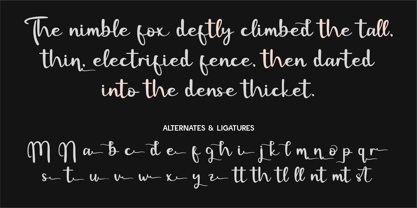 The nimble fox deftly climbed the tall,
thin, electrified fence, then darted
into the dense thicket.
ALTERNATES & LIGATURES
M N a b c d e f g h i j k l m n o p q r
s t u v w x y z tt th tl ll nt mt st